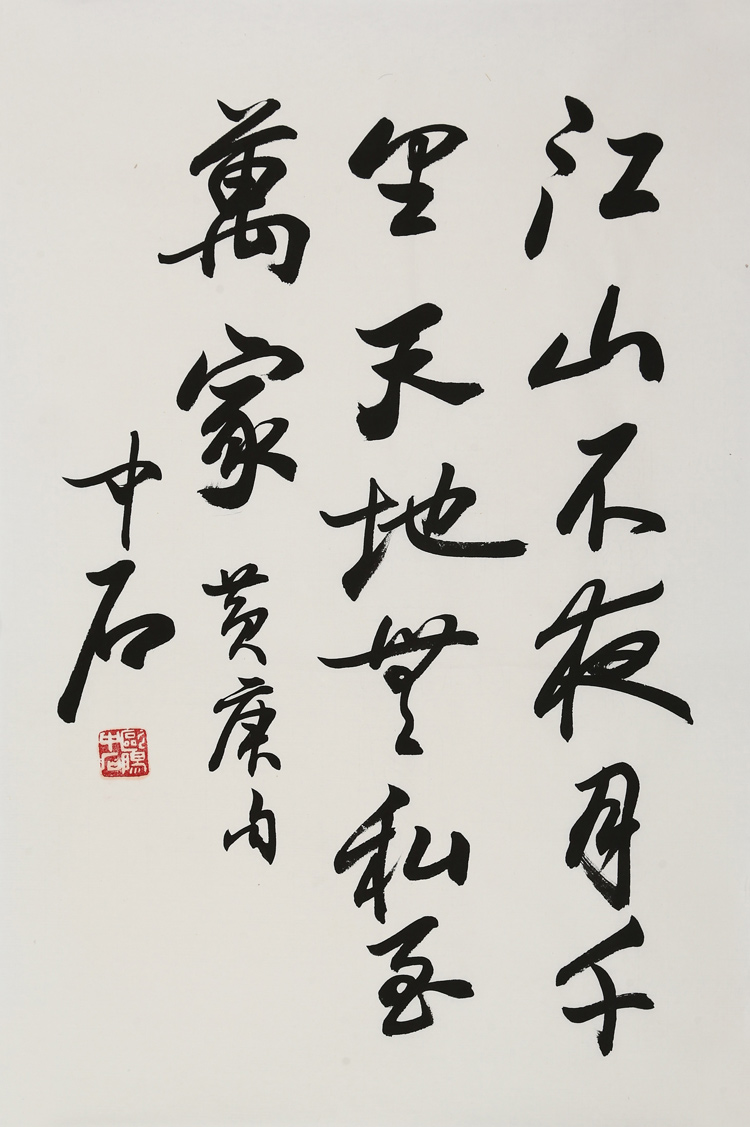 江山不夜月千
里天地無私至
萬家 黄庚句
中石
歐陽中石